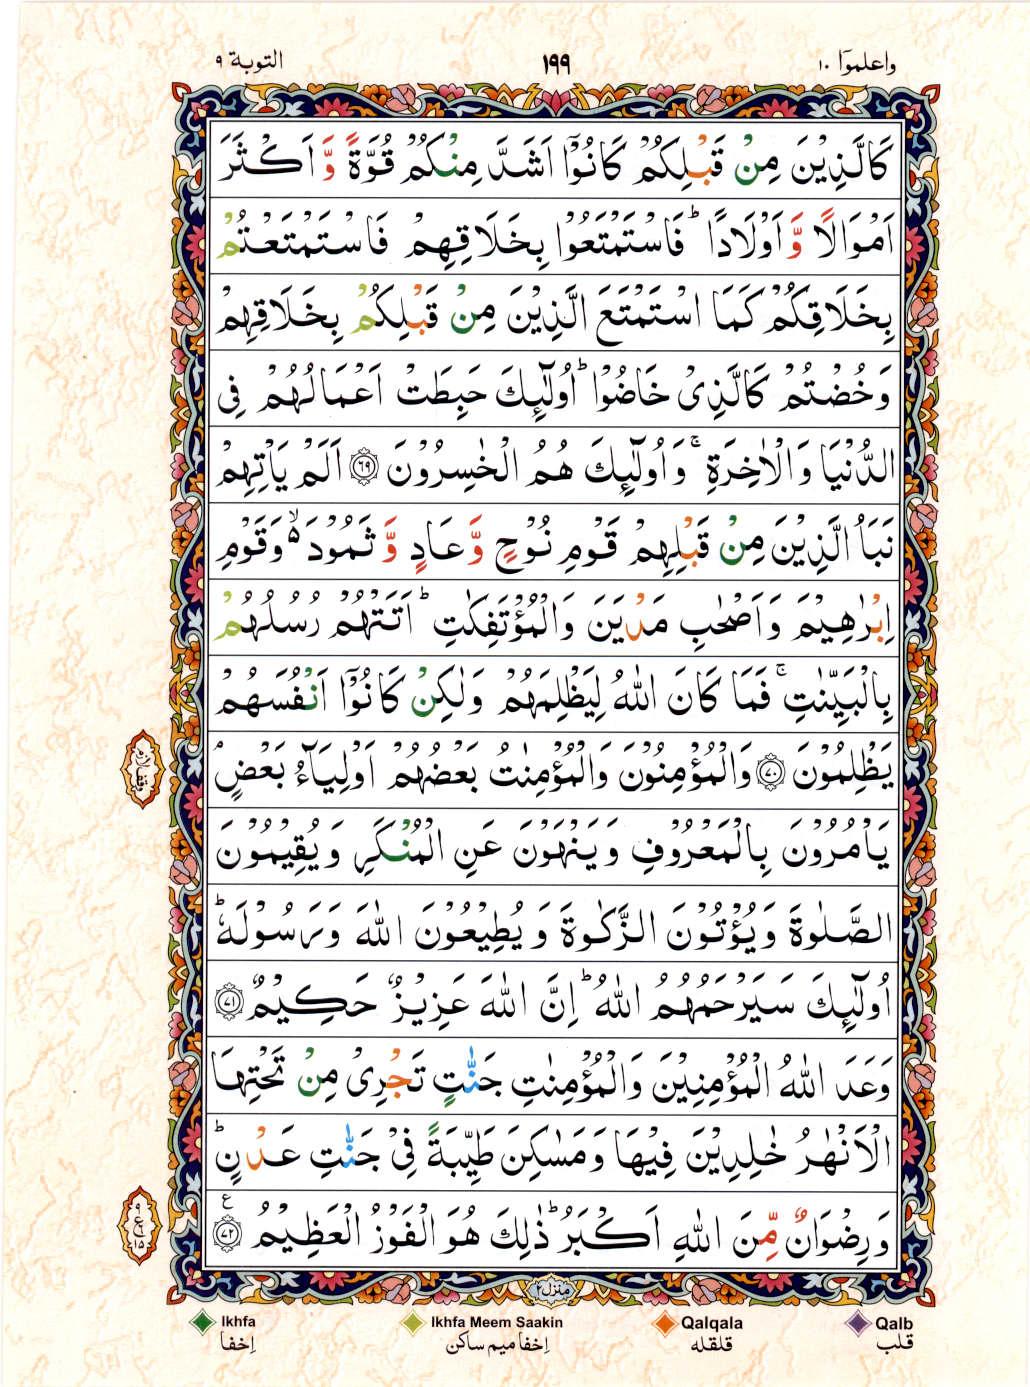 واعلموٓا ١٠
١٩٩
التوبة ٩
كَالَّذِيْنَ مِنْ قَبْلِكُمْ كَانُوْٓا اَشَدَّ مِنْكُمْ قُوَّةً وَّ اَكْثَرَ
اَمْوَالًا وَّ اَوْلَادًا ؕ فَاسْتَمْتَعُوْا بِخَلَاقِهِمْ فَاسْتَمْتَعْتُمْ
بِخَلَاقِكُمْ كَمَا اسْتَمْتَعَ الَّذِيْنَ مِنْ قَبْلِكُمْ بِخَلَاقِهِمْ
وَخُضْتُمْ كَالَّذِیْ خَاضُوْا ؕ اُولٰٓئِكَ حَبِطَتْ اَعْمَالُهُمْ فِی
الدُّنْيَا وَالْاٰخِرَةِ ۚ وَاُولٰٓئِكَ هُمُ الْخٰسِرُوْنَ ﴿٦٩﴾ اَلَمْ يَاْتِهِمْ
نَبَاُ الَّذِيْنَ مِنْ قَبْلِهِمْ قَوْمِ نُوْحٍ وَّعَادٍ وَّ ثَمُوْدَ ۙ۬ وَقَوْمِ
اِبْرٰهِيْمَ وَاَصْحٰبِ مَدْيَنَ وَالْمُؤْتَفِكٰتِ ؕ اَتَتْهُمْ رُسُلُهُمْ
بِالْبَيِّنٰتِ ۚ فَمَا كَانَ اللّٰهُ لِيَظْلِمَهُمْ وَلٰكِنْ كَانُوْٓا اَنْفُسَهُمْ
يَظْلِمُوْنَ ﴿٧٠﴾ وَالْمُؤْمِنُوْنَ وَالْمُؤْمِنٰتُ بَعْضُهُمْ اَوْلِيَآءُ بَعْضٍ ۘ
يَاْمُرُوْنَ بِالْمَعْرُوْفِ وَيَنْهَوْنَ عَنِ الْمُنْكَرِ وَيُقِيْمُوْنَ
الصَّلٰوةَ وَيُؤْتُوْنَ الزَّكٰوةَ وَيُطِيْعُوْنَ اللّٰهَ وَرَسُوْلَهٗ ؕ
اُولٰٓئِكَ سَيَرْحَمُهُمُ اللّٰهُ ؕ اِنَّ اللّٰهَ عَزِيْزٌ حَكِيْمٌ ﴿٧١﴾
وَعَدَ اللّٰهُ الْمُؤْمِنِيْنَ وَالْمُؤْمِنٰتِ جَنّٰتٍ تَجْرِیْ مِنْ تَحْتِهَا
الْاَنْهٰرُ خٰلِدِيْنَ فِيْهَا وَمَسٰكِنَ طَيِّبَةً فِیْ جَنّٰتِ عَدْنٍ ؕ
وَرِضْوَانٌ مِّنَ اللّٰهِ اَكْبَرُ ؕ ذٰلِكَ هُوَ الْفَوْزُ الْعَظِيْمُ ﴿٧٢﴾ ع
وقف لازم
٩
ع
١٥
منزل ٢
Ikhfa
إخفا
Ikhfa Meem Saakin
إخفا ميم ساكن
Qalqala
قلقله
Qalb
قلب